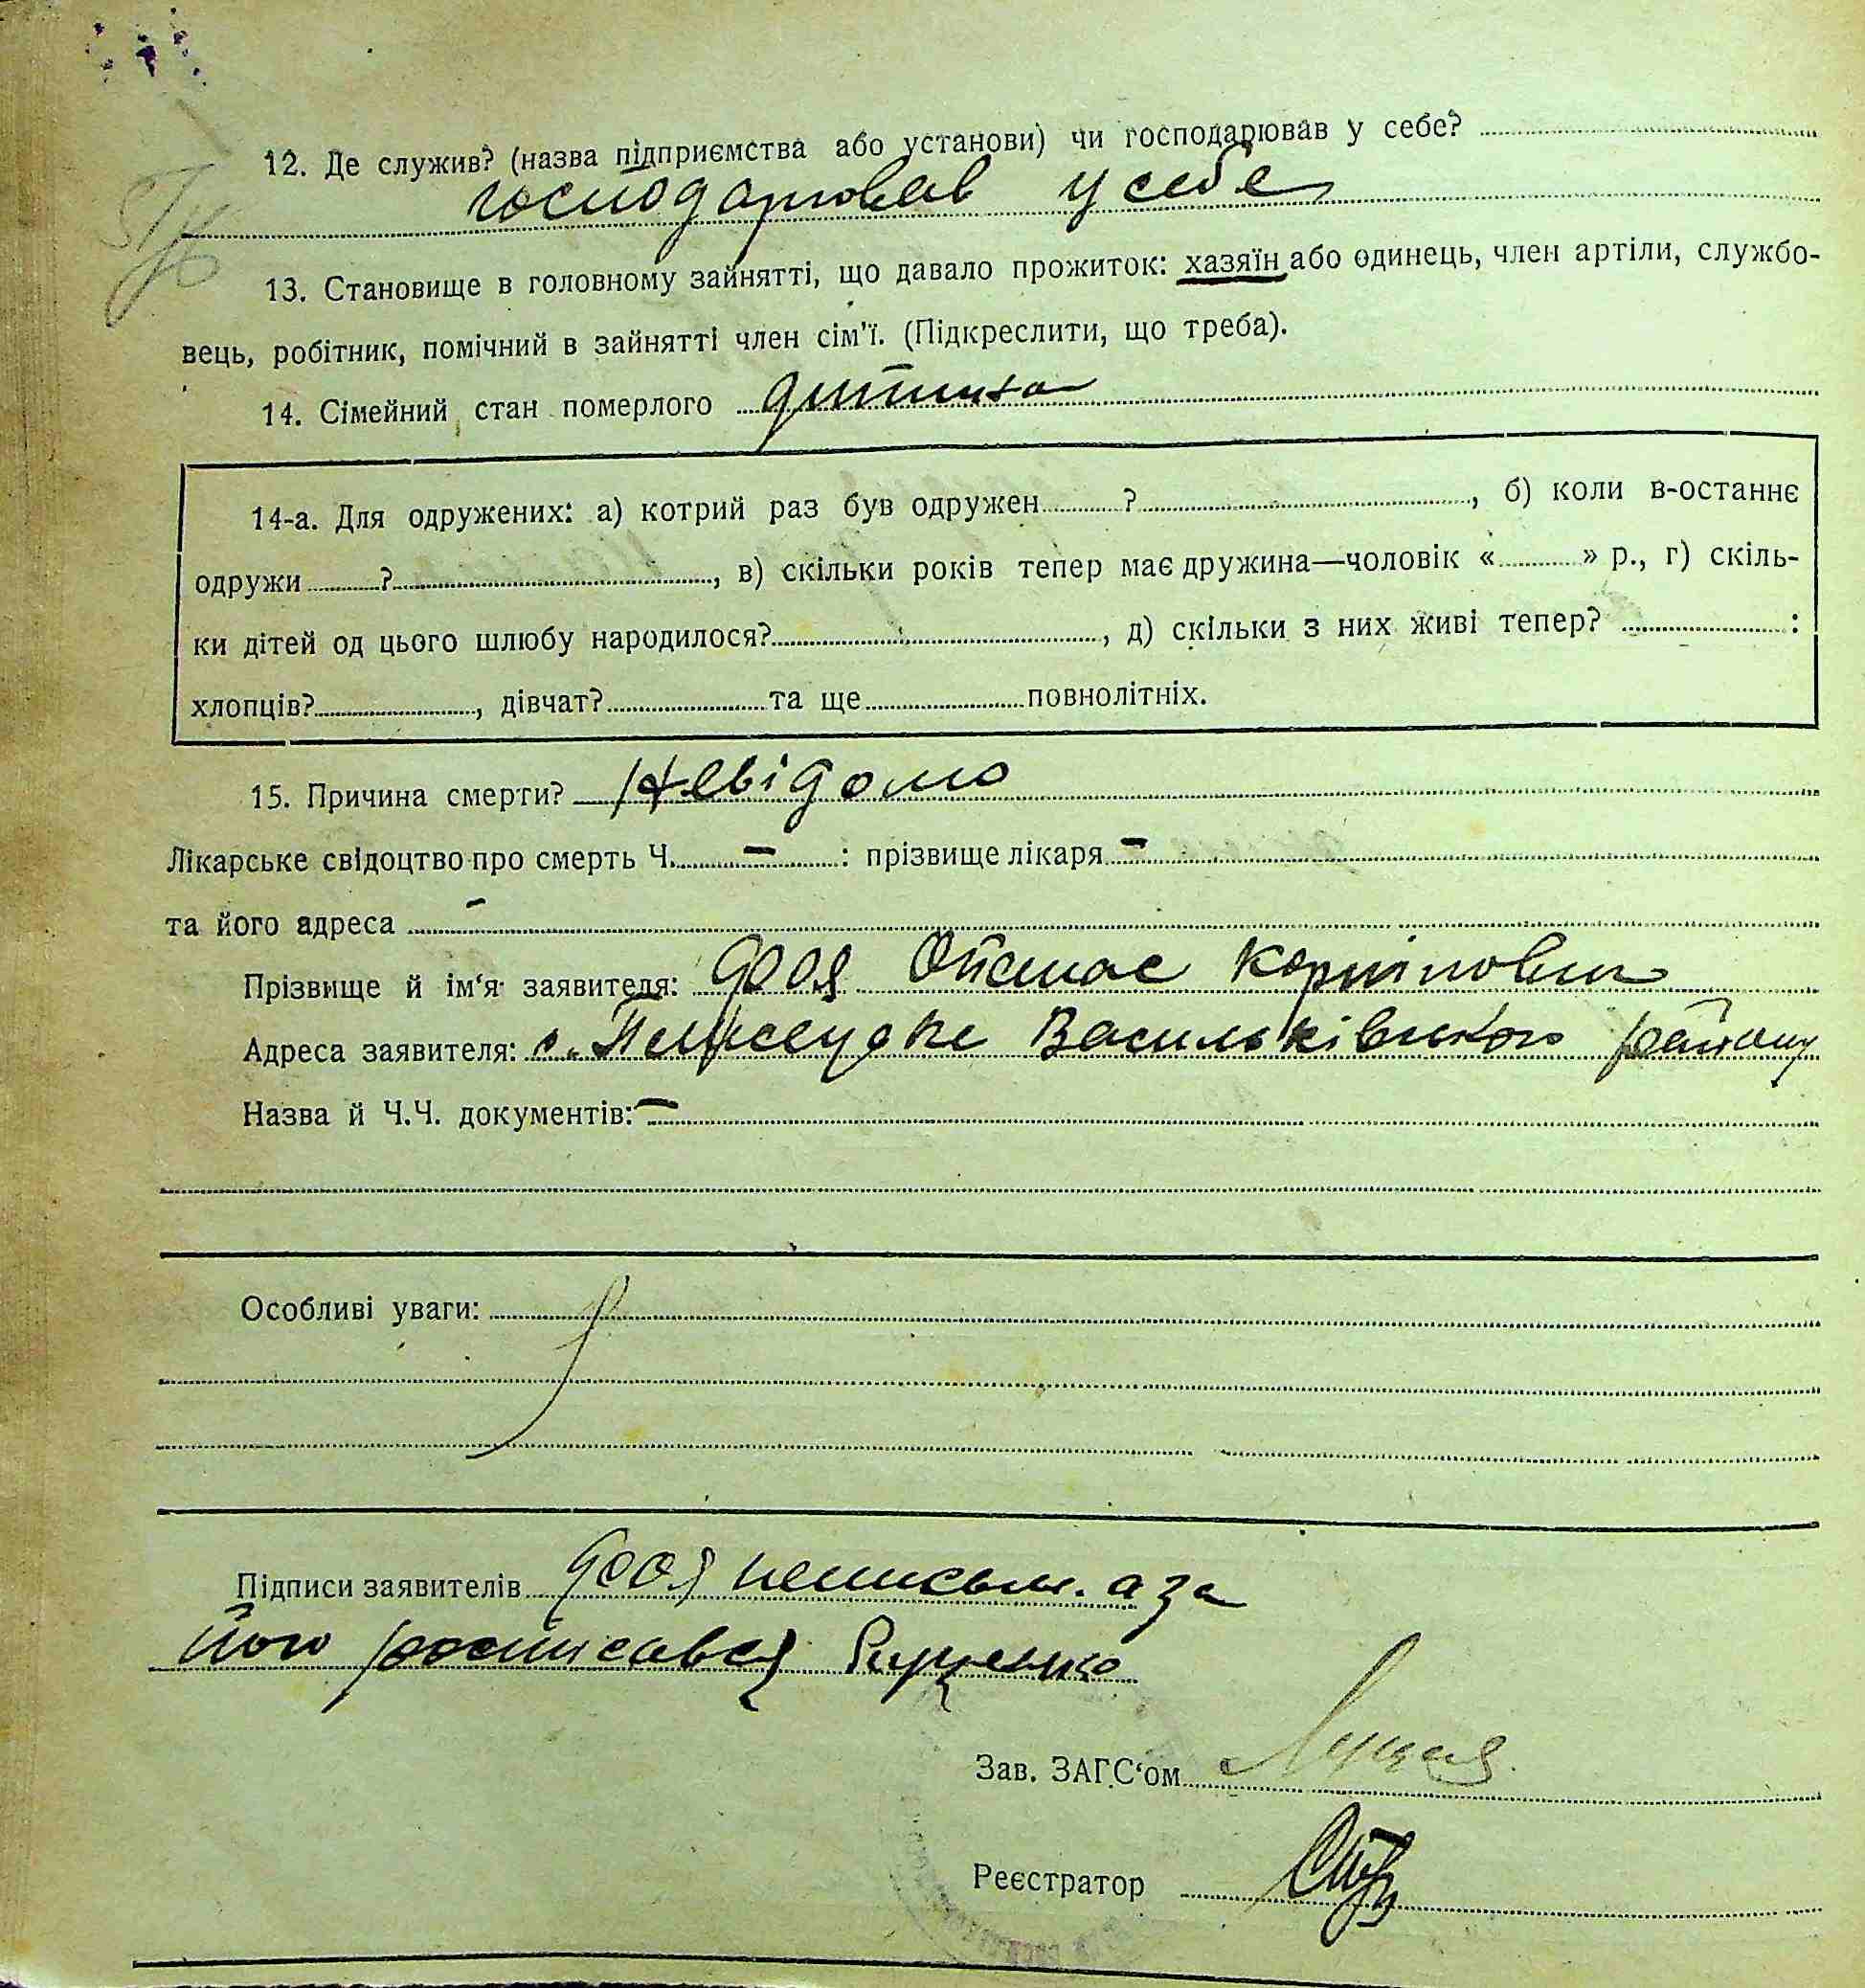 12. Де служив? (назва підприємства або установи) чи господарював у себе?
господарював у себе
13. Становище в головному зайнятті, що давало прожиток: хазяїн або одинець, член артіли, службо-
вець, робітник, помічний в зайнятті член сім'ї. (Підкреслити, що треба).
14. Сімейний стан померлого дитина
14-а. Для одружених: а) котрий раз був одружен ?, б) коли в-останнє
одружи ?, в) скільки років тепер має дружина—чоловік « » р., г) скіль-
ки дітей од цього шлюбу народилося?, д) скільки з них живі тепер? :
хлопців?, дівчат? та ще повнолітніх.
15. Причина смерти? Невідомо
Лікарське свідоцтво про смерть Ч. — : прізвище лікаря —
та його адреса —
Прізвище й ім'я заявителя: Опанас Карпінович
Адреса заявителя: с. Васильківського району
Назва й Ч.Ч. документів: —
Особливі уваги:
Підписи заявителів неписьм. а за
його росписався
Зав. ЗАГС'ом
Реєстратор